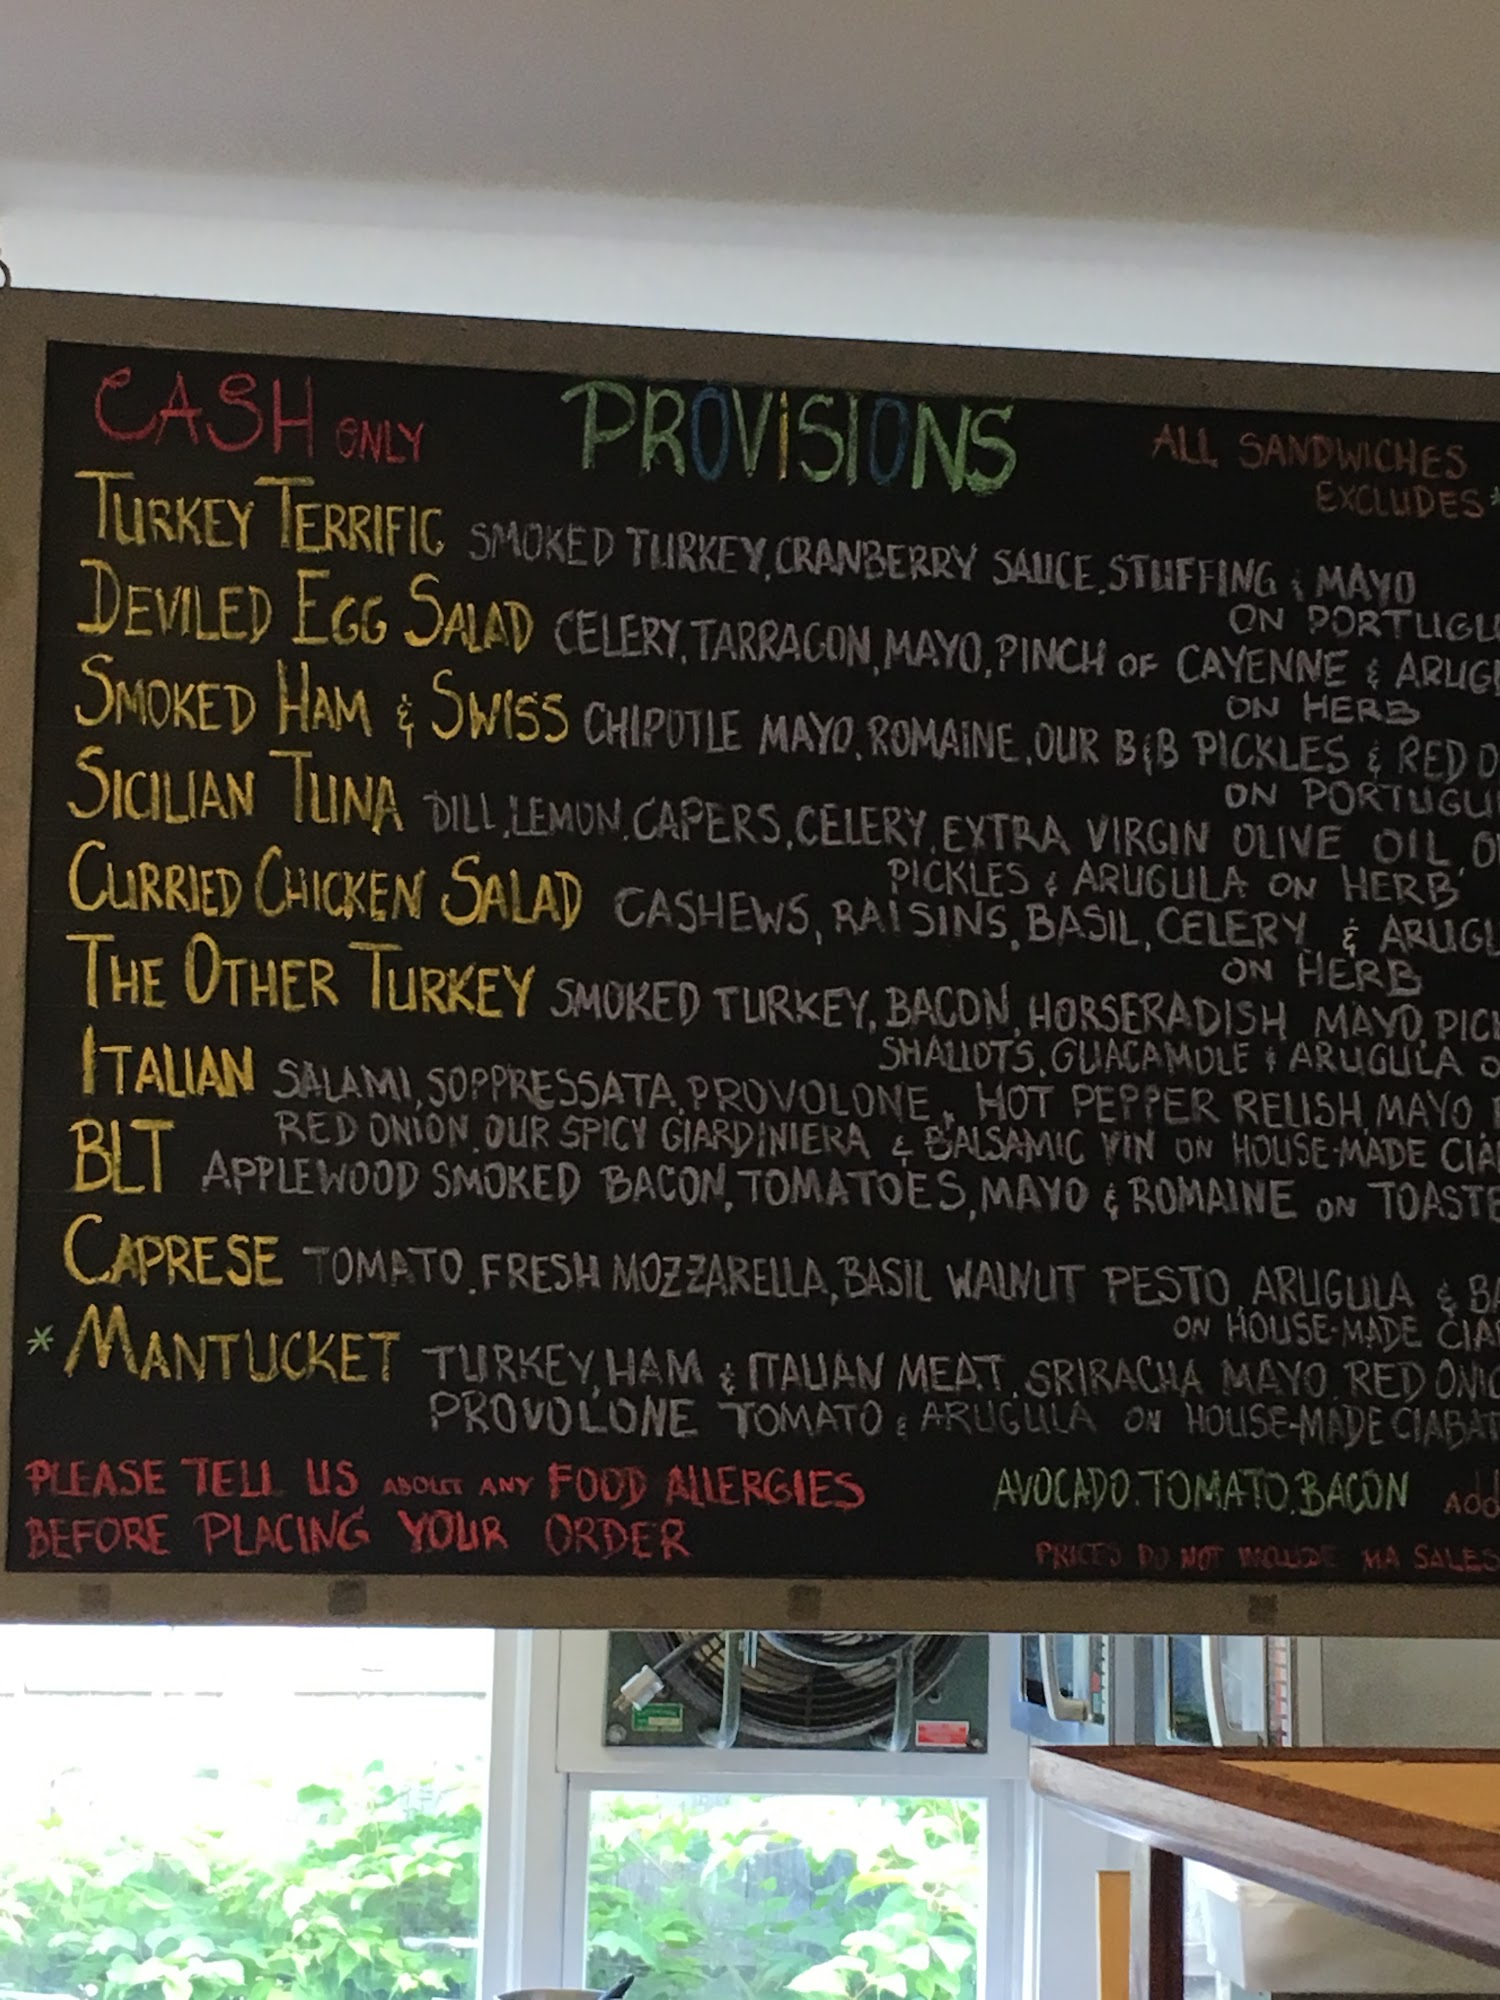 CASH ONLY PROVISIONS ALL SANDWICHES
EXCLUDES *
TURKEY TERRIFIC SMOKED TURKEY, CRANBERRY SAUCE, STUFFING & MAYO
ON
DEVILED EGG SALAD CELERY, TARRAGON, MAYO, PINCH OF CAYENNE &
ON HERB
SMOKED HAM & SWISS CHIPOTLE MAYO, ROMAINE, OUR B&B PICKLES & RED
ON
SICILIAN TUNA DILL, LEMON, CAPERS, CELERY, EXTRA VIRGIN OLIVE OIL,
PICKLES & ARUGULA ON HERB
CURRIED CHICKEN SALAD CASHEWS, RAISINS, BASIL, CELERY &
ON HERB
THE OTHER TURKEY SMOKED TURKEY, BACON, HORSERADISH MAYO,
SHALLOTS, GUACAMOLE & ARUGULA
ITALIAN SALAMI, SOPPRESSATA, PROVOLONE, HOT PEPPER RELISH, MAYO
RED ONION, OUR SPICY GIARDINIERA & BALSAMIC VIN ON HOUSE-MADE
BLT APPLEWOOD SMOKED BACON, TOMATOES, MAYO & ROMAINE ON
CAPRESE TOMATO, FRESH MOZZARELLA, BASIL WALNUT PESTO, ARUGULA &
ON HOUSE-MADE
* MANTUCKET TURKEY, HAM & ITALIAN MEAT, SRIRACHA MAYO, RED
PROVOLONE TOMATO & ARUGULA ON HOUSE-MADE
PLEASE TELL US ABOUT ANY FOOD ALLERGIES
BEFORE PLACING YOUR ORDER
AVOCADO. TOMATO. BACON
PRICES DO NOT INCLUDE MA SALES